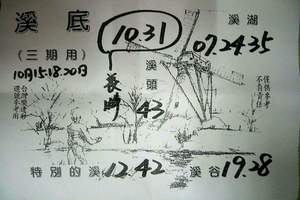 溪底
(三期用)
10月15.18.20日
10.31
長期
溪湖
07.24.35
溪頭
43
僅供參考
不負責任
特別的溪 12.42
溪谷 19.28